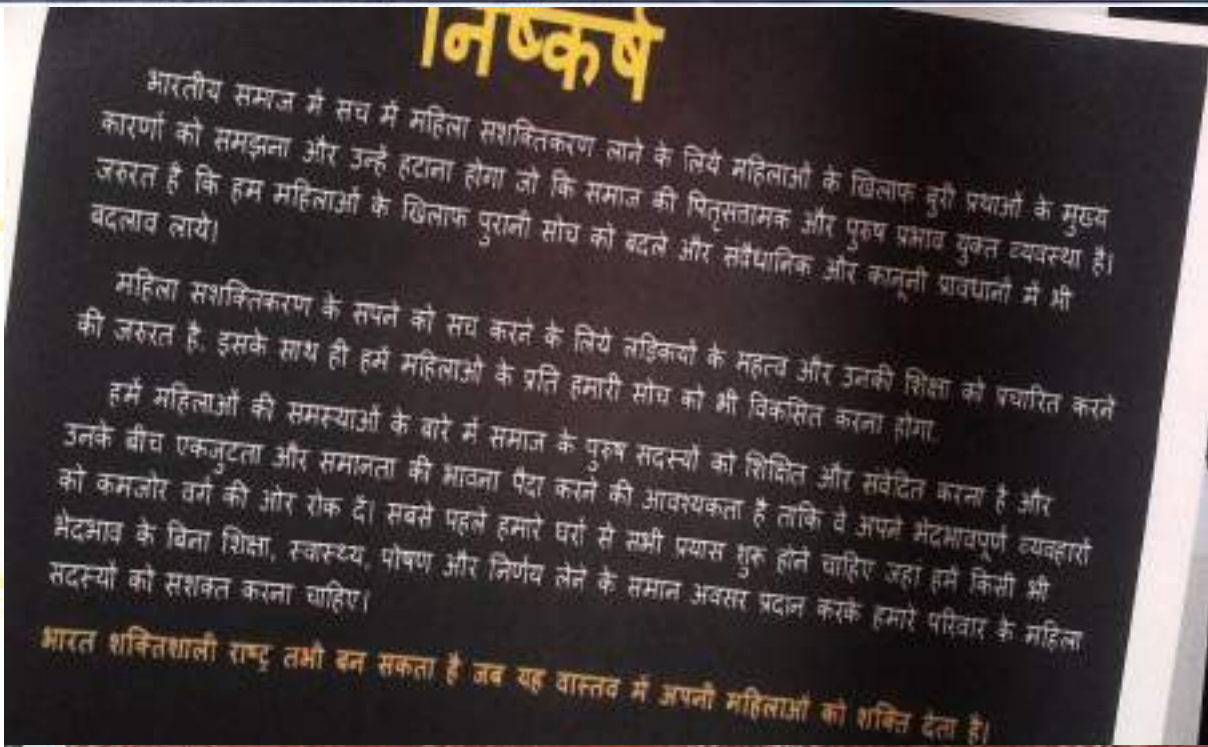 निष्कर्ष
भारतीय समाज में सच में महिला सशक्तिकरण लाने के लिये महिलाओं के खिलाफ बुरी प्रथाओं के मुख्य
कारणों को समझना और उन्हे हटाना होगा जो कि समाज की पितृसत्तामक और पुरुष प्रभाव युक्त व्यवस्था है।
जरुरत है कि हम महिलाओं के खिलाफ पुरानी सोच को बदले और संवैधानिक और कानूनी प्रावधानों में भी
बदलाव लाये।
महिला सशक्तिकरण के सपने को सच करने के लिये लड़िकयों के महत्व और उनकी शिक्षा को प्रचारित करने
की जरुरत है. इसके साथ ही हमें महिलाओं के प्रति हमारी सोच को भी विकसित करना होगा.
हमें महिलाओं की समस्याओं के बारे में समाज के पुरुष सदस्यों को शिक्षित और संवेदित करना है और
उनके बीच एकजुटता और समानता की भावना पैदा करने की आवश्यकता है ताकि वे अपने भेदभावपूर्ण व्यवहारों
को कमजोर वर्ग की ओर रोक दें। सबसे पहले हमारे घरों से सभी प्रयास शुरू होने चाहिए जहां हमें किसी भी
भेदभाव के बिना शिक्षा, स्वास्थ्य, पोषण और निर्णय लेने के समान अवसर प्रदान करके हमारे परिवार के महिला
सदस्यों को सशक्त करना चाहिए।
भारत शक्तिशाली राष्ट्र तभी बन सकता है जब यह वास्तव में अपनी महिलाओं को शक्ति देता है।